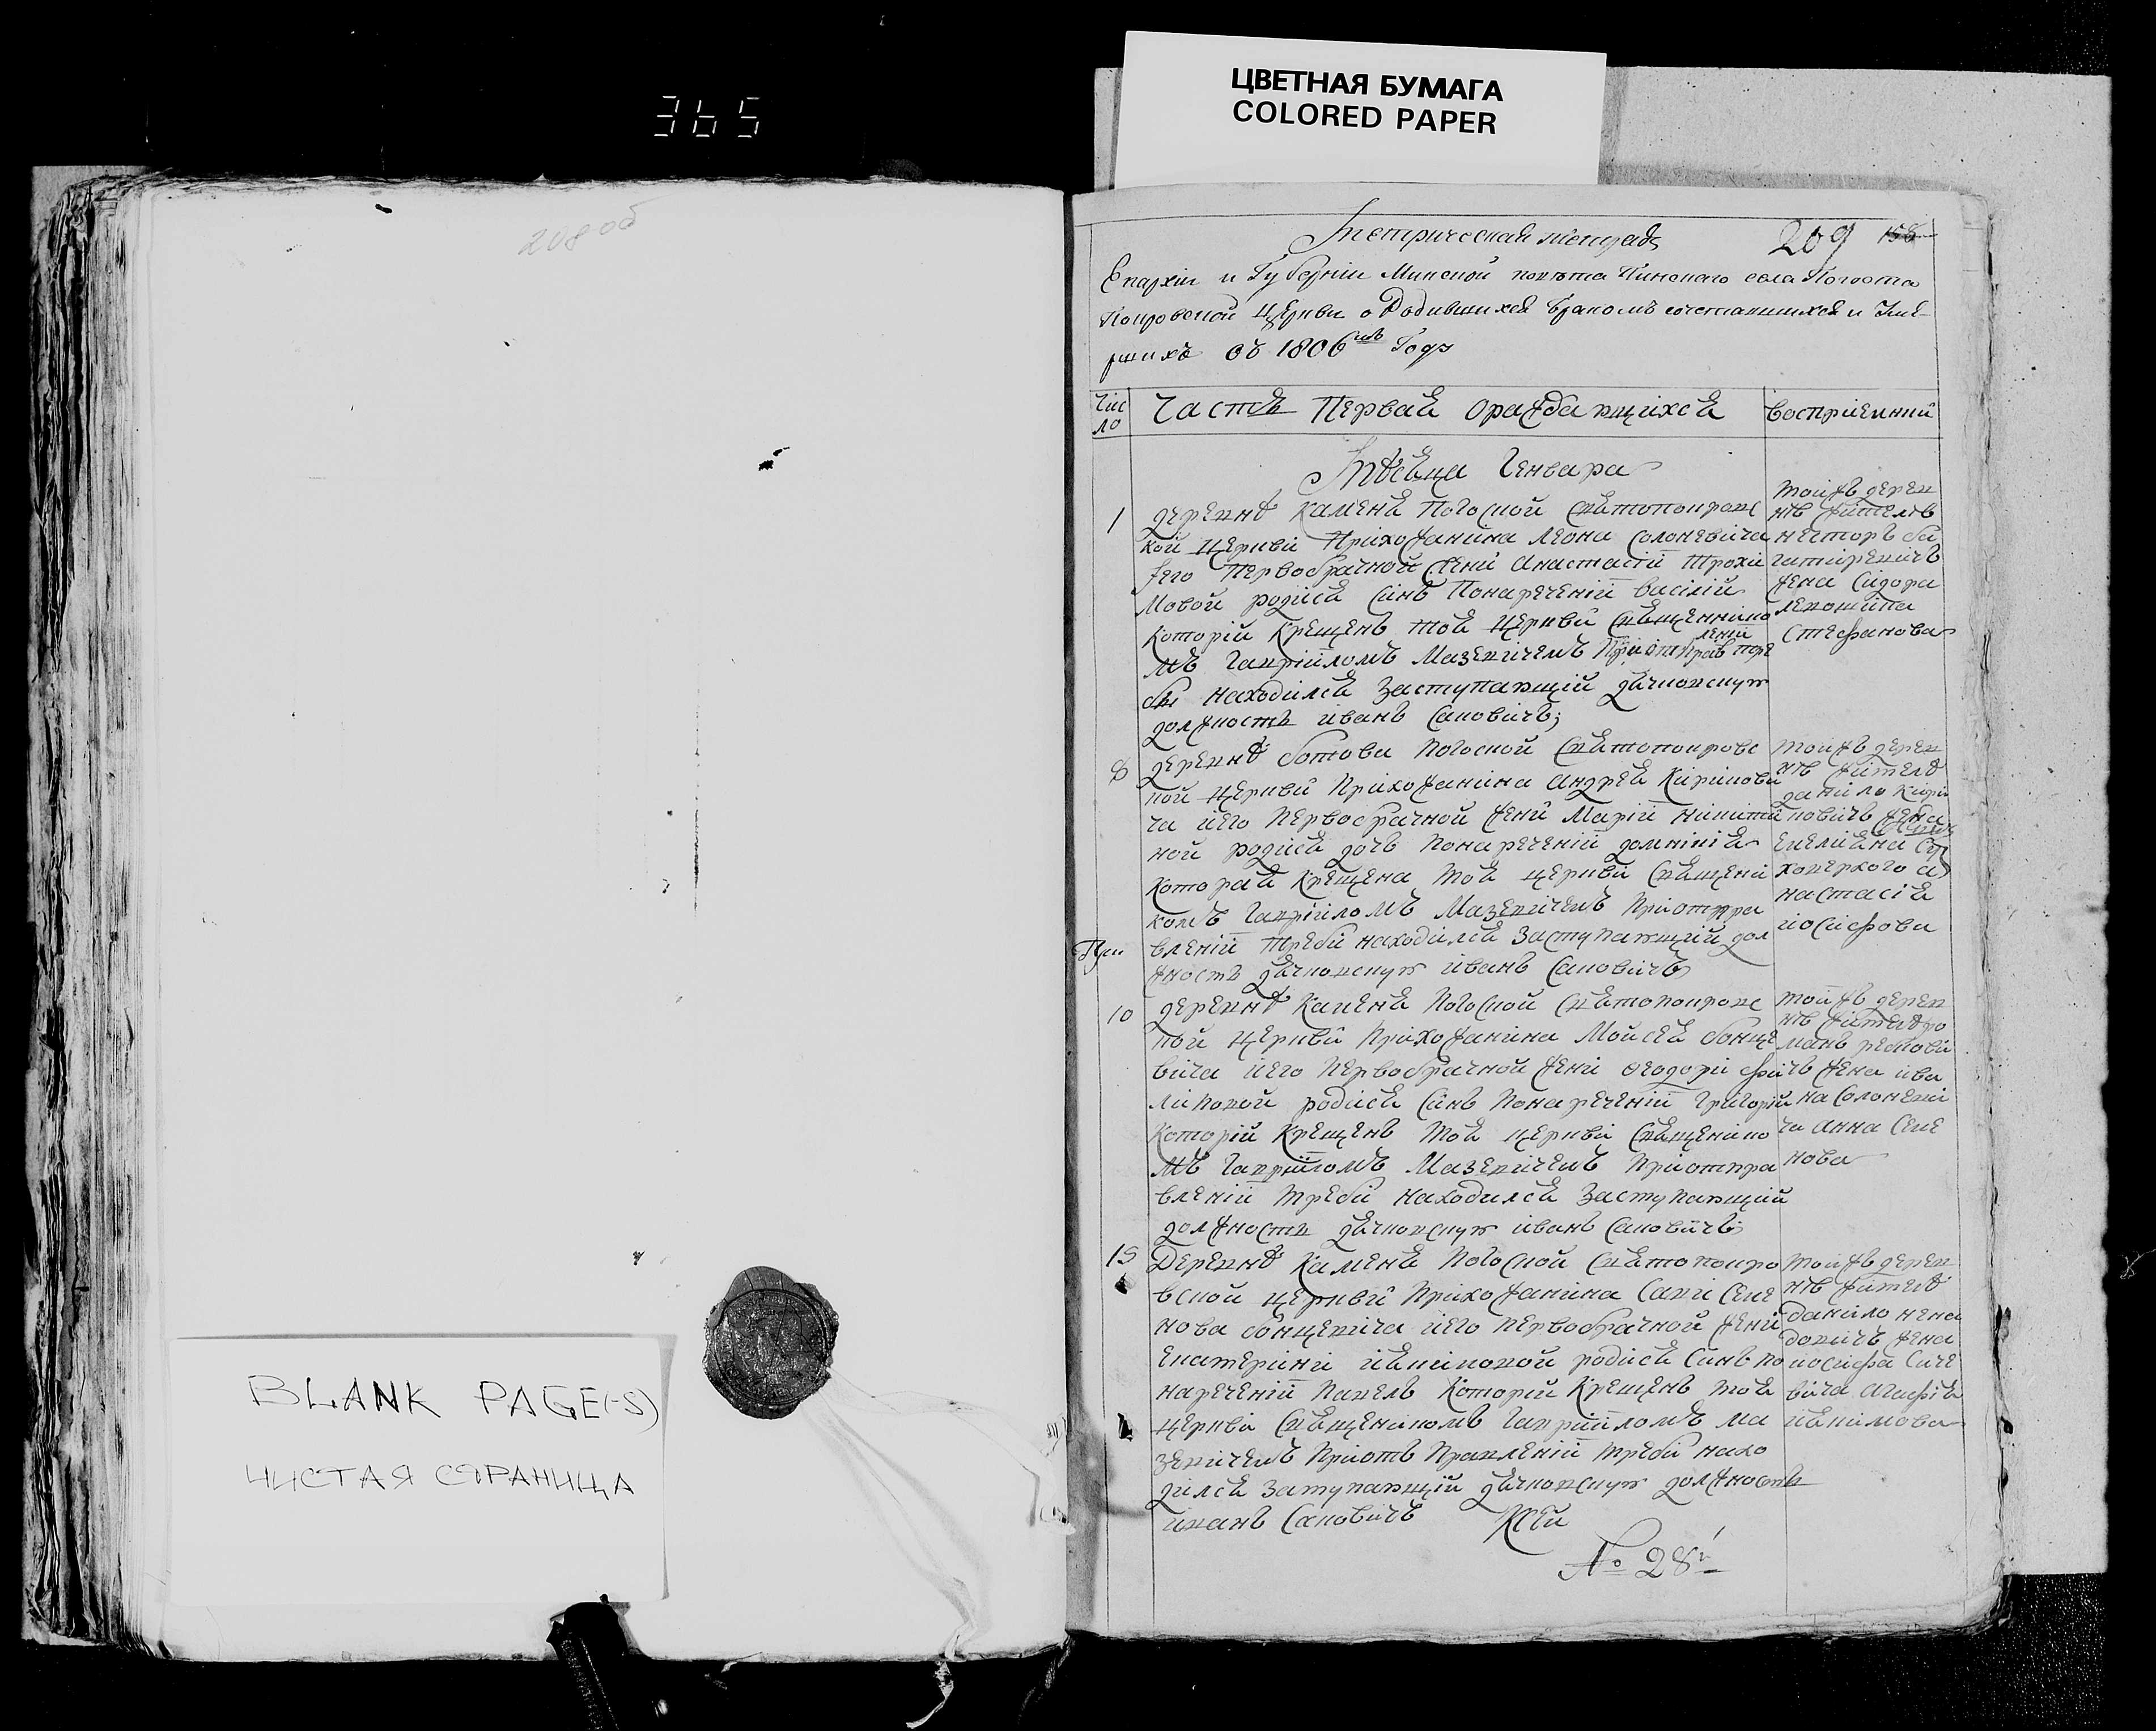 365
ЦВЕТНАЯ БУМАГА
COLORED PAPER
208 об
BLANK PAGE(-S)
ЧИСТАЯ СТРАНИЦА
209 158
Епархіи и Губерніи Минской повѣта Пинскаго села Погоста
Покровской Церкви о Родившихся браномъ сочетавшихся и Уме-
ршихъ съ 1806 Годъ
Чис
ло
Часть Первая о раждающихся
восприемники
Мѣсяца Генвара
1
деревнѣ Каменя Погоской Святопокровс
кой церкви Прихожанина Леона Солоневича
его Первобрачной жени Анастасій Трохи
мовой родися Синъ Понареченій Василій
Которій Крещенъ тоя Церкви Священнико
мъ Гавріиломъ Мазевичемъ При отправ
леній
треби находился Заступающій дячковскую
должность иванъ Саковичъ;
тойжъ дерев
нѣ жителъ
несторъ
жена Сидора
Стефанова
8
деревнѣ Ботова Погоской Святопокровс
кой церкви Прихожанина Андрея Кирикови
ча иего Первобрачной жени Маріи никити
ной родися дочь Понареченій домникія
Которая Крещена тоя церкви Священи
комъ Гавріиломъ Мазевичемъ При отпра
вленій треби находился Заступающій дол
жность дячковскую иванъ Саковичъ
тойжъ дерев
нѣ жителъ
данило Кири
ковичъ жена
Емеляна
а
настасія
иосифова
При
10
деревнѣ Каменя Погоской Святопокровс
кой церкви Прихожанина Мойсея Бонце
вича иего Первобрачной жени феодори фи
липовой родися Синъ Понареченій Григорій
Которій Крещенъ тоя церкви Священико
мъ Гавріиломъ Мазевичемъ При отпра
вленій треби находился Заступающій
должность дячковскую иванъ Саковичъ;
тойжъ дерев
нѣ жителъ ро
манъ
чъ жена ива
на Солоневи
ча Анна Семе
нова
15
Деревнѣ Каменя Погоской Святопокро
вской церкви Прихожанина Сави Семе
нова Бонцевича иего Первобрачной жени
Екатерини иякимовой родися Синъ по
нареченій Павелъ Которій Крещенъ тоя
церкви Священикомъ Гавріиломъ Ма
зевичемъ При отъ Правленій треби нахо
дился Затупающій дячковскую должность
иванъ Саковичъ
тойжъ дерев
нѣ жителъ
данило нена
довичъ жена
иосифа Саче
вича Агафія
иякимова
№ 28